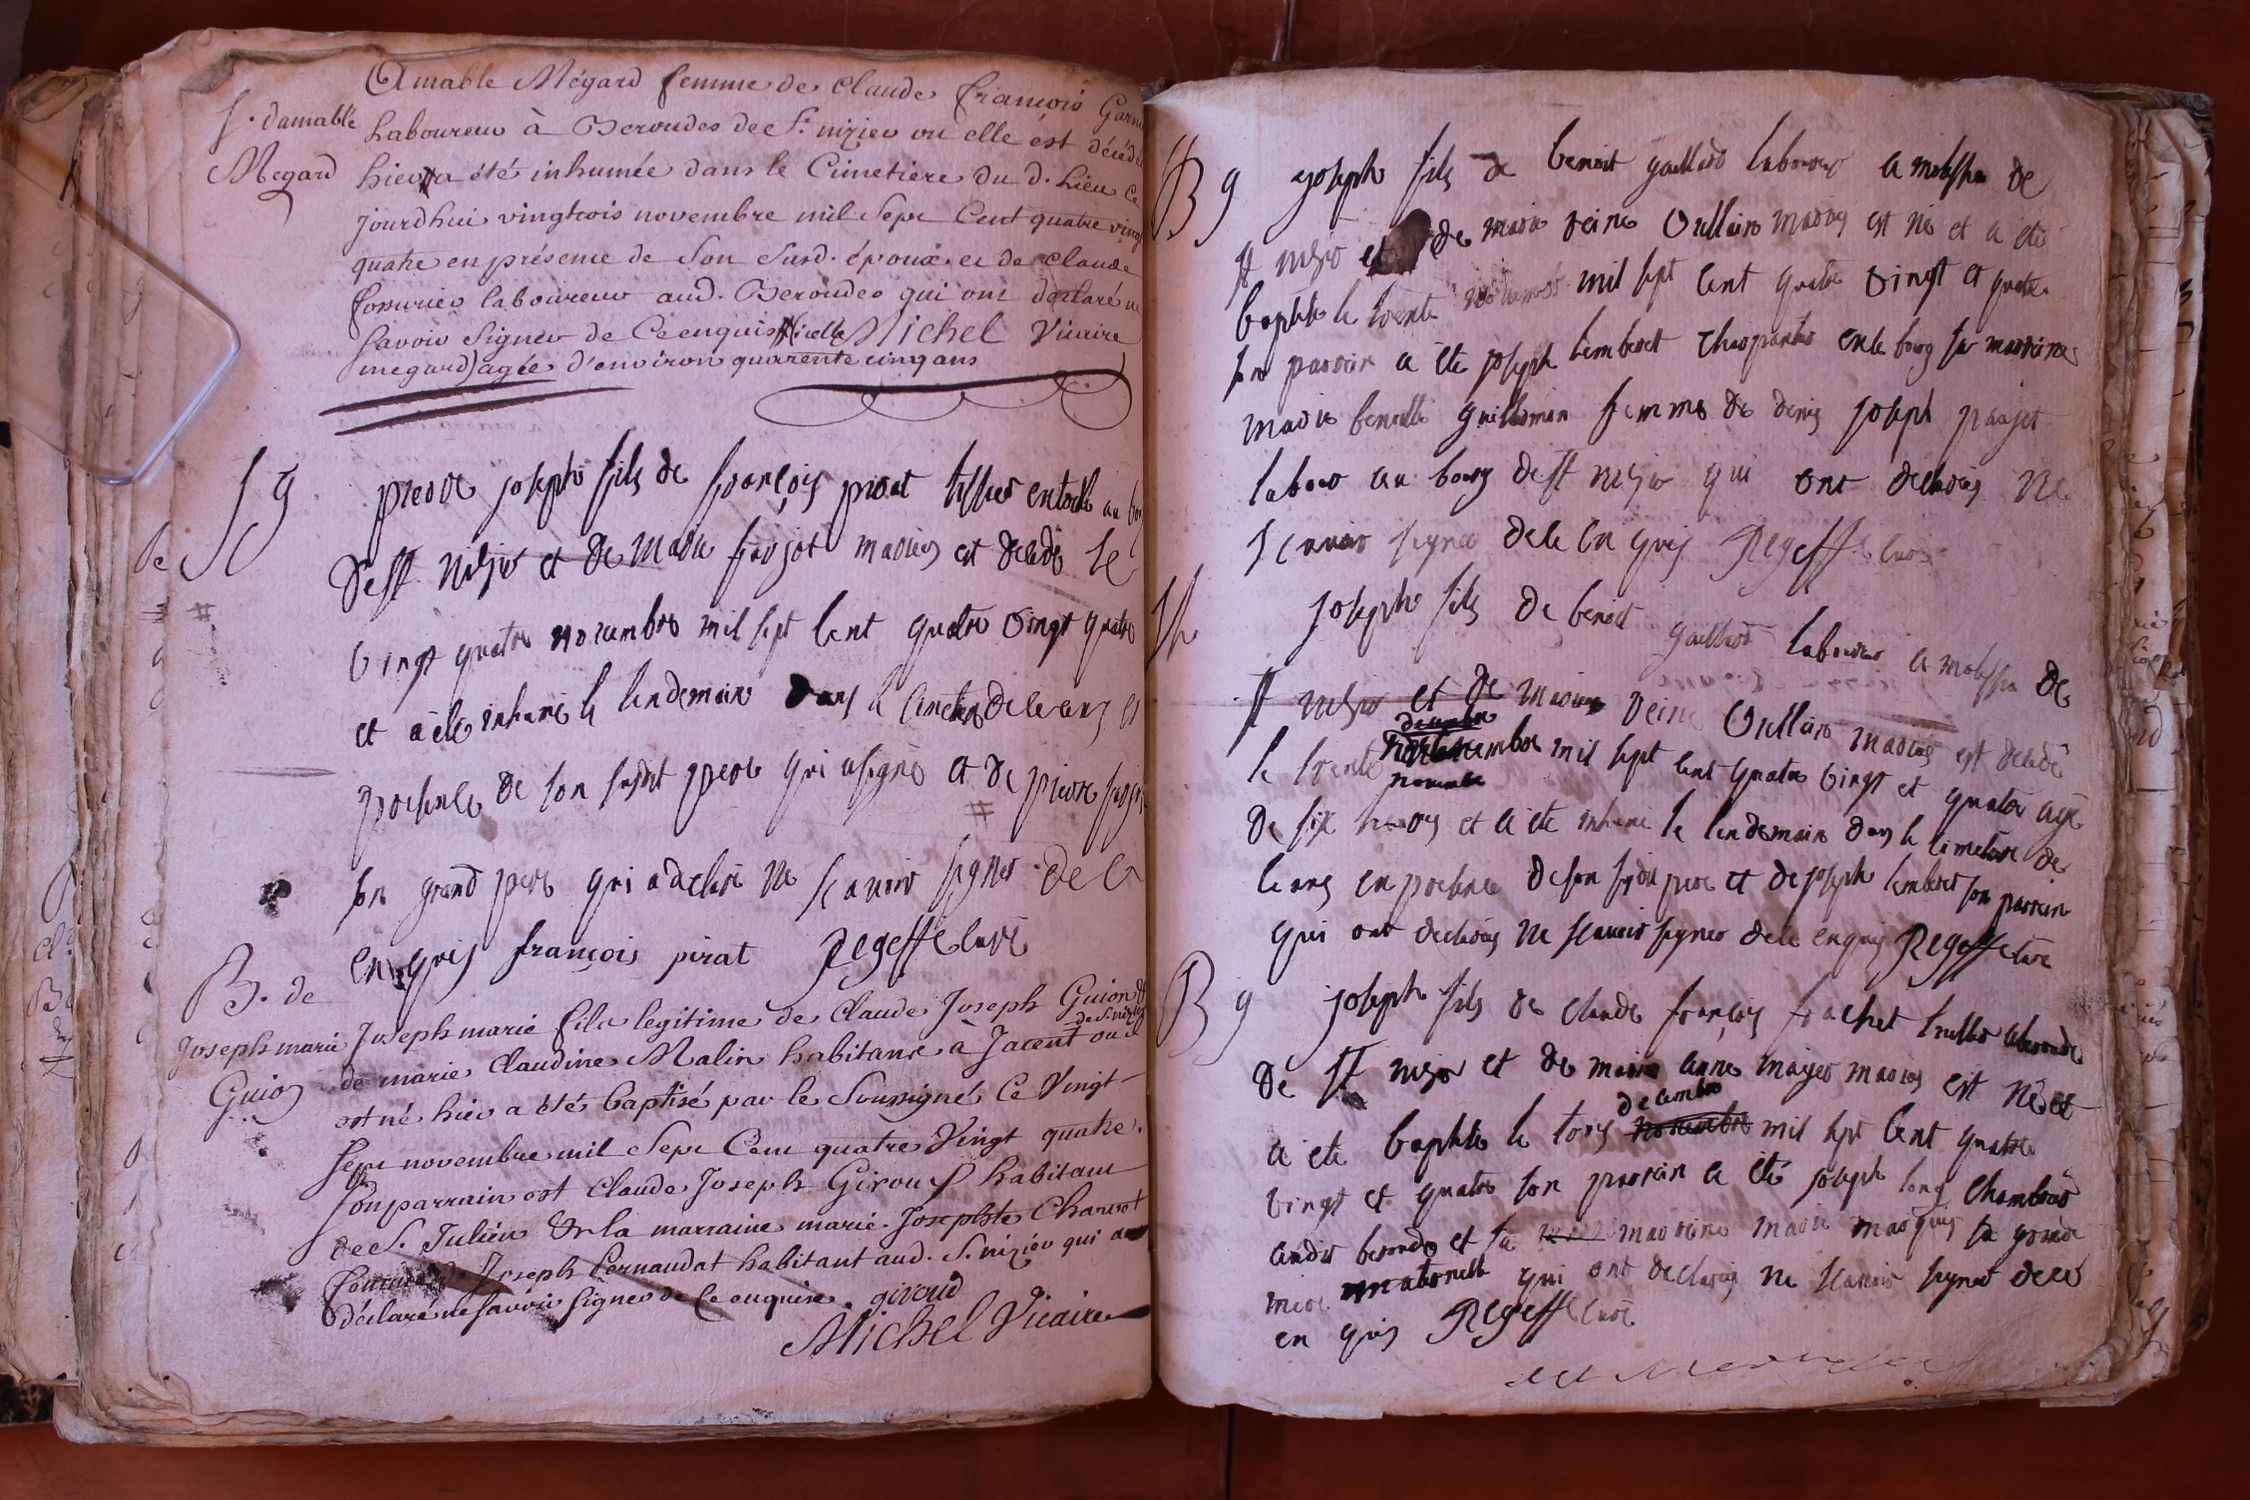 Amable Mégard femme de Claude françois
Laboureur à Beroudes de St. nizier ou elle est
S. damable
Megard
hier a été inhumée dans le Cimetiere du d. Lieu ce
jourdhui vingtrois novembre mil Sept Cent quatre vingt
quatre en présence de Son Susd. époux et de claude
laboureur aud. Beroudes qui ont declaré ne
Savoir Signer de Ce enquis (icelle Michel Vicaire
megard) agée d'environ quarente cinq ans
S g
pierre joseph fils de françois pirat tissier en toille au
de st nizier et de marie maries est decede le
vingt quatre novembre mil sept cent quatre vingt quatre
et a ete inhumé le lendemain dans le cimetiere de ceans en
presence de son susdit pere qui a signé et de pierre
son grand pere qui a declaré ne scavoir signer de ce
enquis françois pirat Regeffe curé
B. de
Joseph marie
Guion
Joseph marie fils legitime de Claude Joseph Guion &
de St. nizier
de marie Claudine Malin habitans à Jacent ou il
est né hier a été baptisé par le Soussigné Ce Vingt-
Sept novembre mil Sept Cent quatre Vingt quatre.
Son parrain est Claude Joseph Giroud habitant
de St. Julien & la marraine marie. Josephte
Joseph Pernaudat habitant aud. St. nizier qui a
déclaré ne Savoir Signer de Ce enquise. giroud
Michel Vicaire
B g
joseph fils de benoit gaillard laboureur a de
st nizier et de marie reine vullin maries est né et a été
baptisé le trente novembre mil sept cent quatre vingt et quatre
son parrain a ete joseph lamberet en le bourg sa marraine
marie benoite guillemin femme de denis joseph paujet
labour au bourg de st nizier qui ont declarés ne
scavoir signer de ce enquis Regeffe curé
joseph fils de benoit gaillard laboureur a de
st nizier et de marie reine vullin maries est decedé
decembre
le trente mil sept cent quatre vingt et quatre agé
novembre
de six heures et a ete inhumé le lendemain dans le cimetiere de
ceans en presence de son susdit pere et de joseph lamberet son parrain
qui ont declarés ne scavoir signer de ce enquis Regeffe curé
B g
joseph fils de claude françois frachet
de st nizier et de marie anne mayer maries est né et
decembre
a ete baptisé le trois novembre mil sept cent quatre
vingt et quatre son parrain a été joseph long
audit beroude et sa marraine marie sa grande
mere maternelle qui ont declarés ne scavoir signer de ce
enquis Regeffe curé